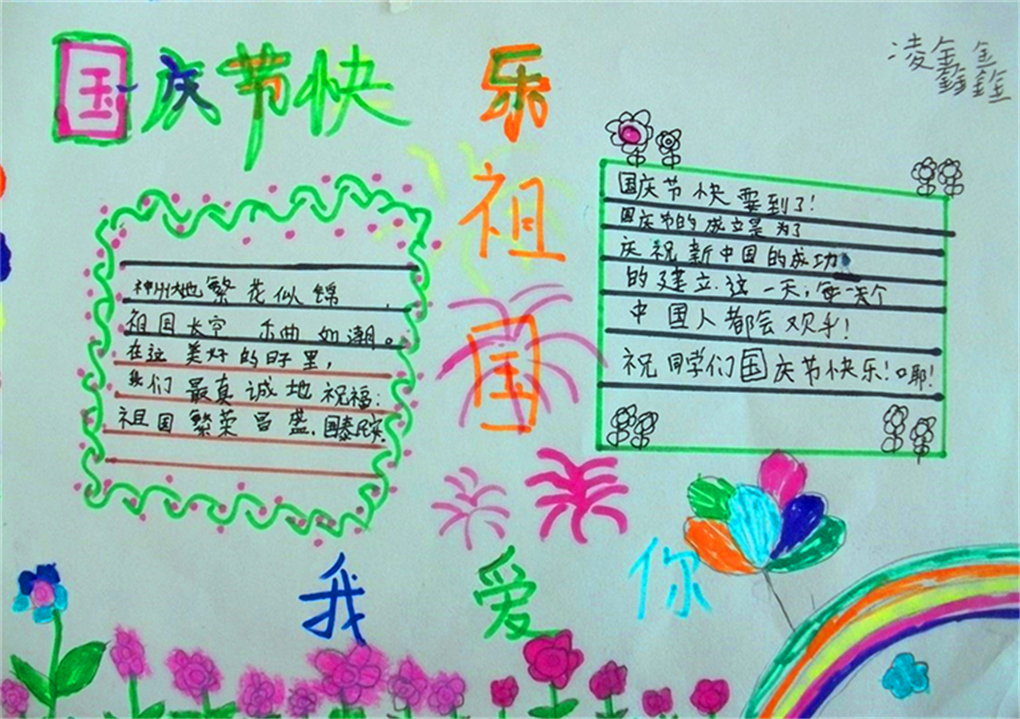 国庆节快乐
祖
国
我爱你
凌鑫鑫
神州大地繁花似锦,
祖国长空 乐曲如潮。
在这美好的日子里,
我们最真诚地祝福:
祖国繁荣昌盛.国泰民安.
国庆节快要到了!
国庆节的成立是为了
庆祝新中国的成功
的建立.这一天,每个
中国人都会欢乎!
祝同学们国庆节快乐!口耶!